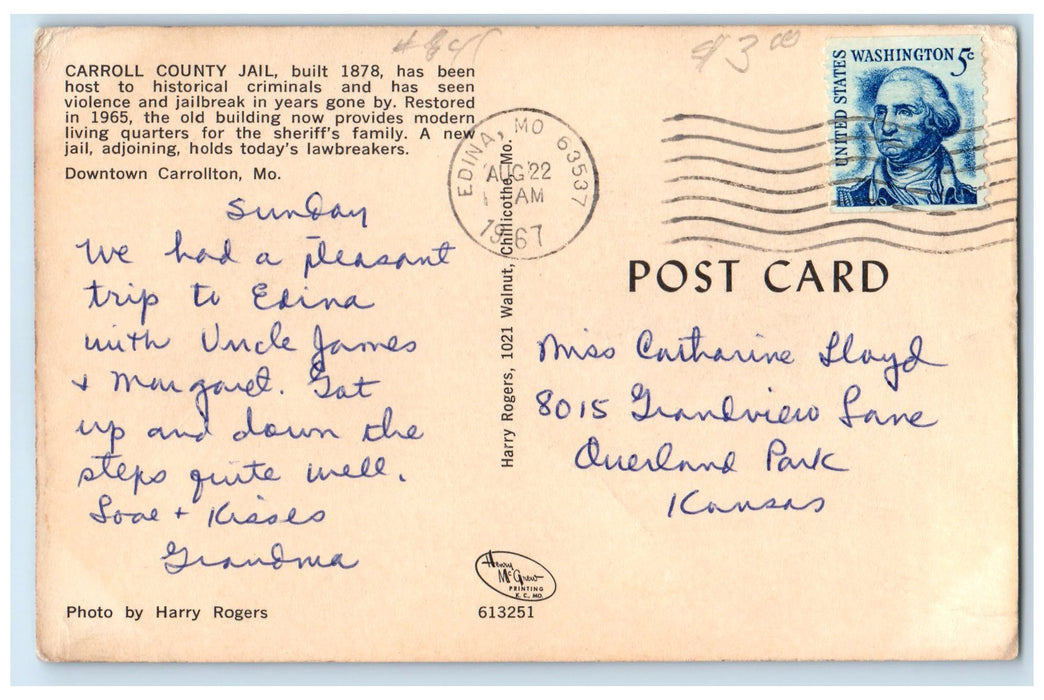 $3.00
CARROLL COUNTY JAIL, built 1878, has been
host to historical criminals and has seen
violence and jailbreak in years gone by. Restored
in 1965, the old building now provides modern
living quarters for the sheriff's family. A new
jail, adjoining, holds today's lawbreakers.
Downtown Carrollton, Mo.
Sunday
We had a pleasant
trip to Edina
with Uncle James
+ Margaret. Got
up and down the
steps quite well.
Love + Kisses
Grandma
Photo by Harry Rogers
EDINA, MO 63537
AUG 22
AM
1967
Harry Rogers, 1021 Walnut, Chillicothe, Mo.
Henry
McGrew
PRINTING
K. C. MO.
613251
UNITED STATES
WASHINGTON 5c
POST CARD
Miss Catharine Lloyd
8015 Grandview Lane
Overland Park
Kansas